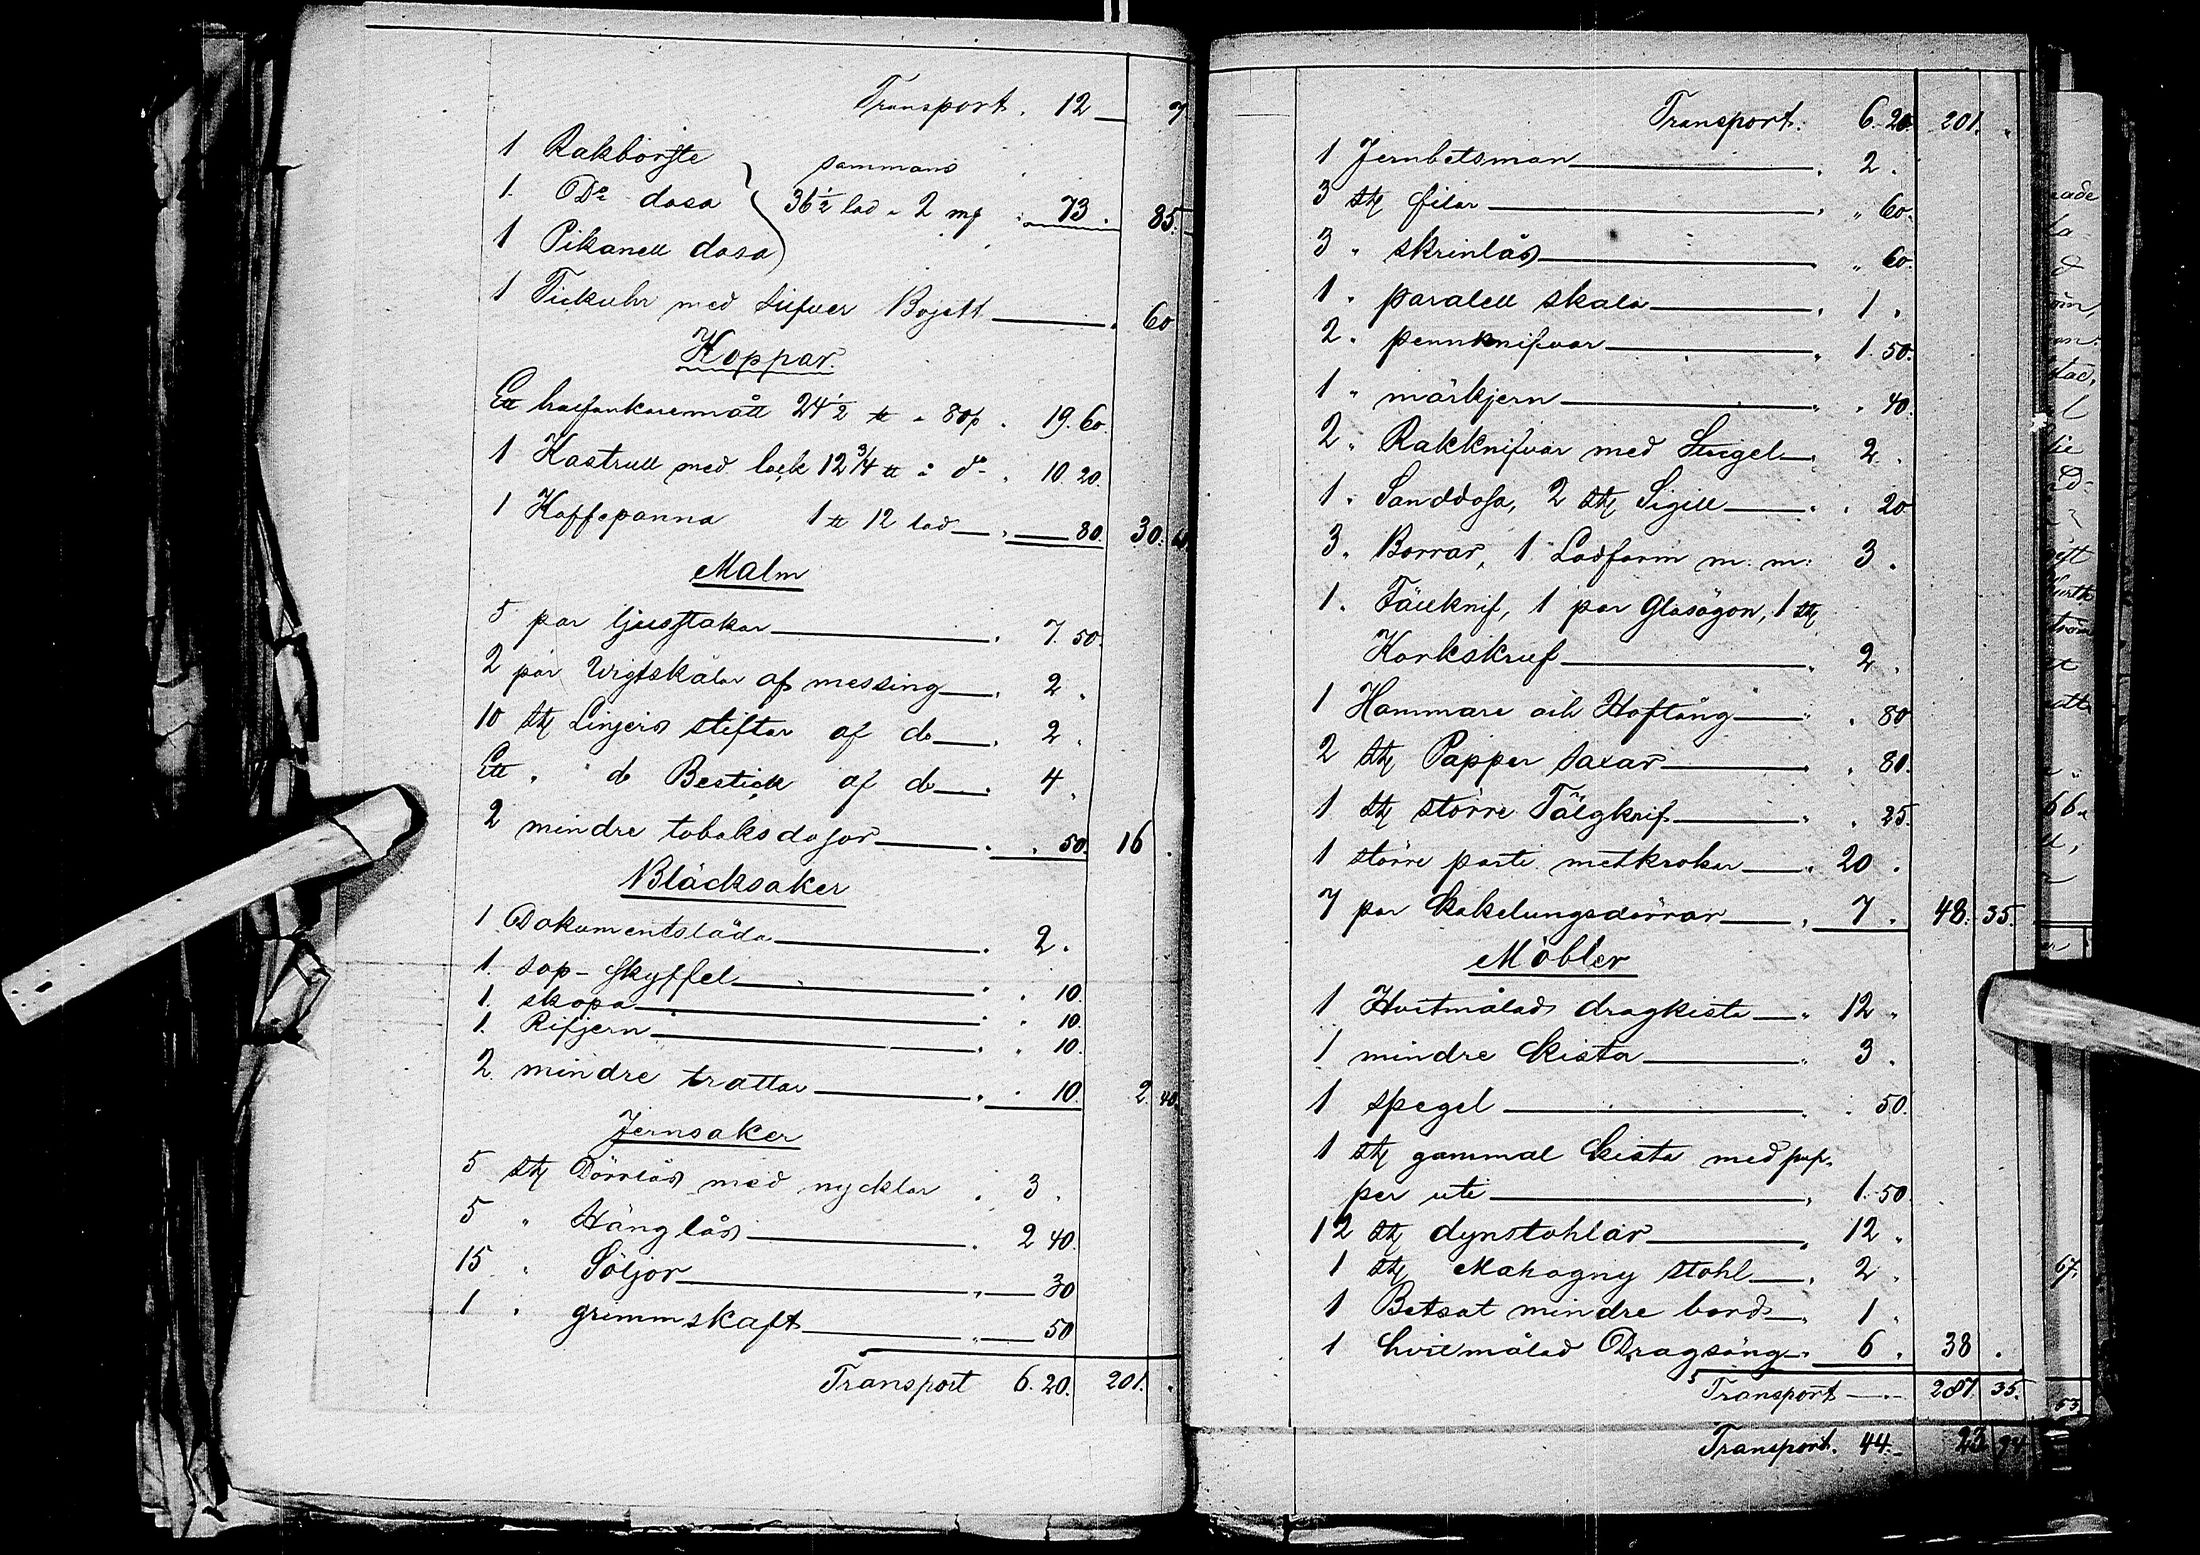 Transport. 12 — 7
1 Rakborste
1. Do dosa } sammans 36½ lod a 2 mf 73. 85.
1 Pikanell dosa
1 Fickuhr med Silfver Bojett — 60
Koppar.
Ett halfankaremått 24½ ℔ a 80p. 19. 60.
1 Kastrull med lock 12¾ ℔ a do 10. 20.
1 Kaffepanna 1 ℔ 12 lod — 80. 30.
Malm
5 par ljusstakar — 7. 50.
2 par Wigtskålar af messing — 2.
10 st Linjers stiftar af do — 2.
Ett " do Bestick af do — 4.
2 mindre tobaksdosor — 50. 16.
Bläcksaker
1 Dokumentslåda — 2.
1 sop-skyffel — 10.
1. skopa — 10.
1. Rifjern — 10.
2 mindre trattar — 10. 2. 40.
Jernsaker
5 st Dörrlås med nycklar . 3.
5 " Hänglås — 2 40.
15 " Söljor — 30
1 " grimmskaft — 50
Transport 6. 20. 201. .
Transport. 6. 20. 201. "
1 Jernbetsman — 2.
3 st filar — " 60.
3 " skrinlås — " 60.
1 " paralell skala — 1 "
2 " pennknifvar — 1. 50.
1 " märkjern — " 40.
2 " Rakknifvar med Strigel — 2.
1 " Sanddosa, 2 st Sigill — " 20
3 " Borrar, 1 Lodform m: m: 3.
1. Fällknif, 1 par Glasögon, 1 st
Korkskruf — 2.
1 Hammare och Hoftång — . 80
2 st Papper saxar — . 80.
1 st större Tälgknif — . 25.
1 större parti metkrokar — 20.
7 par Kakelungsdörrar — 7. 48. 35.
Möbler
1 Hvitmålad dragkista — 12 "
1 mindre Kista — 3.
1 spegel — . 50.
1 st gammal Kista med pap-
per uti — 1. 50.
12 st dynstohlar — 12 "
1 st Mahogny stohl — 2 "
1 Betsat mindre bord — 1 "
1 hvitmålad Dragsäng — 6. 38.
Transport — 287. 35.
Transport. 44. — 23